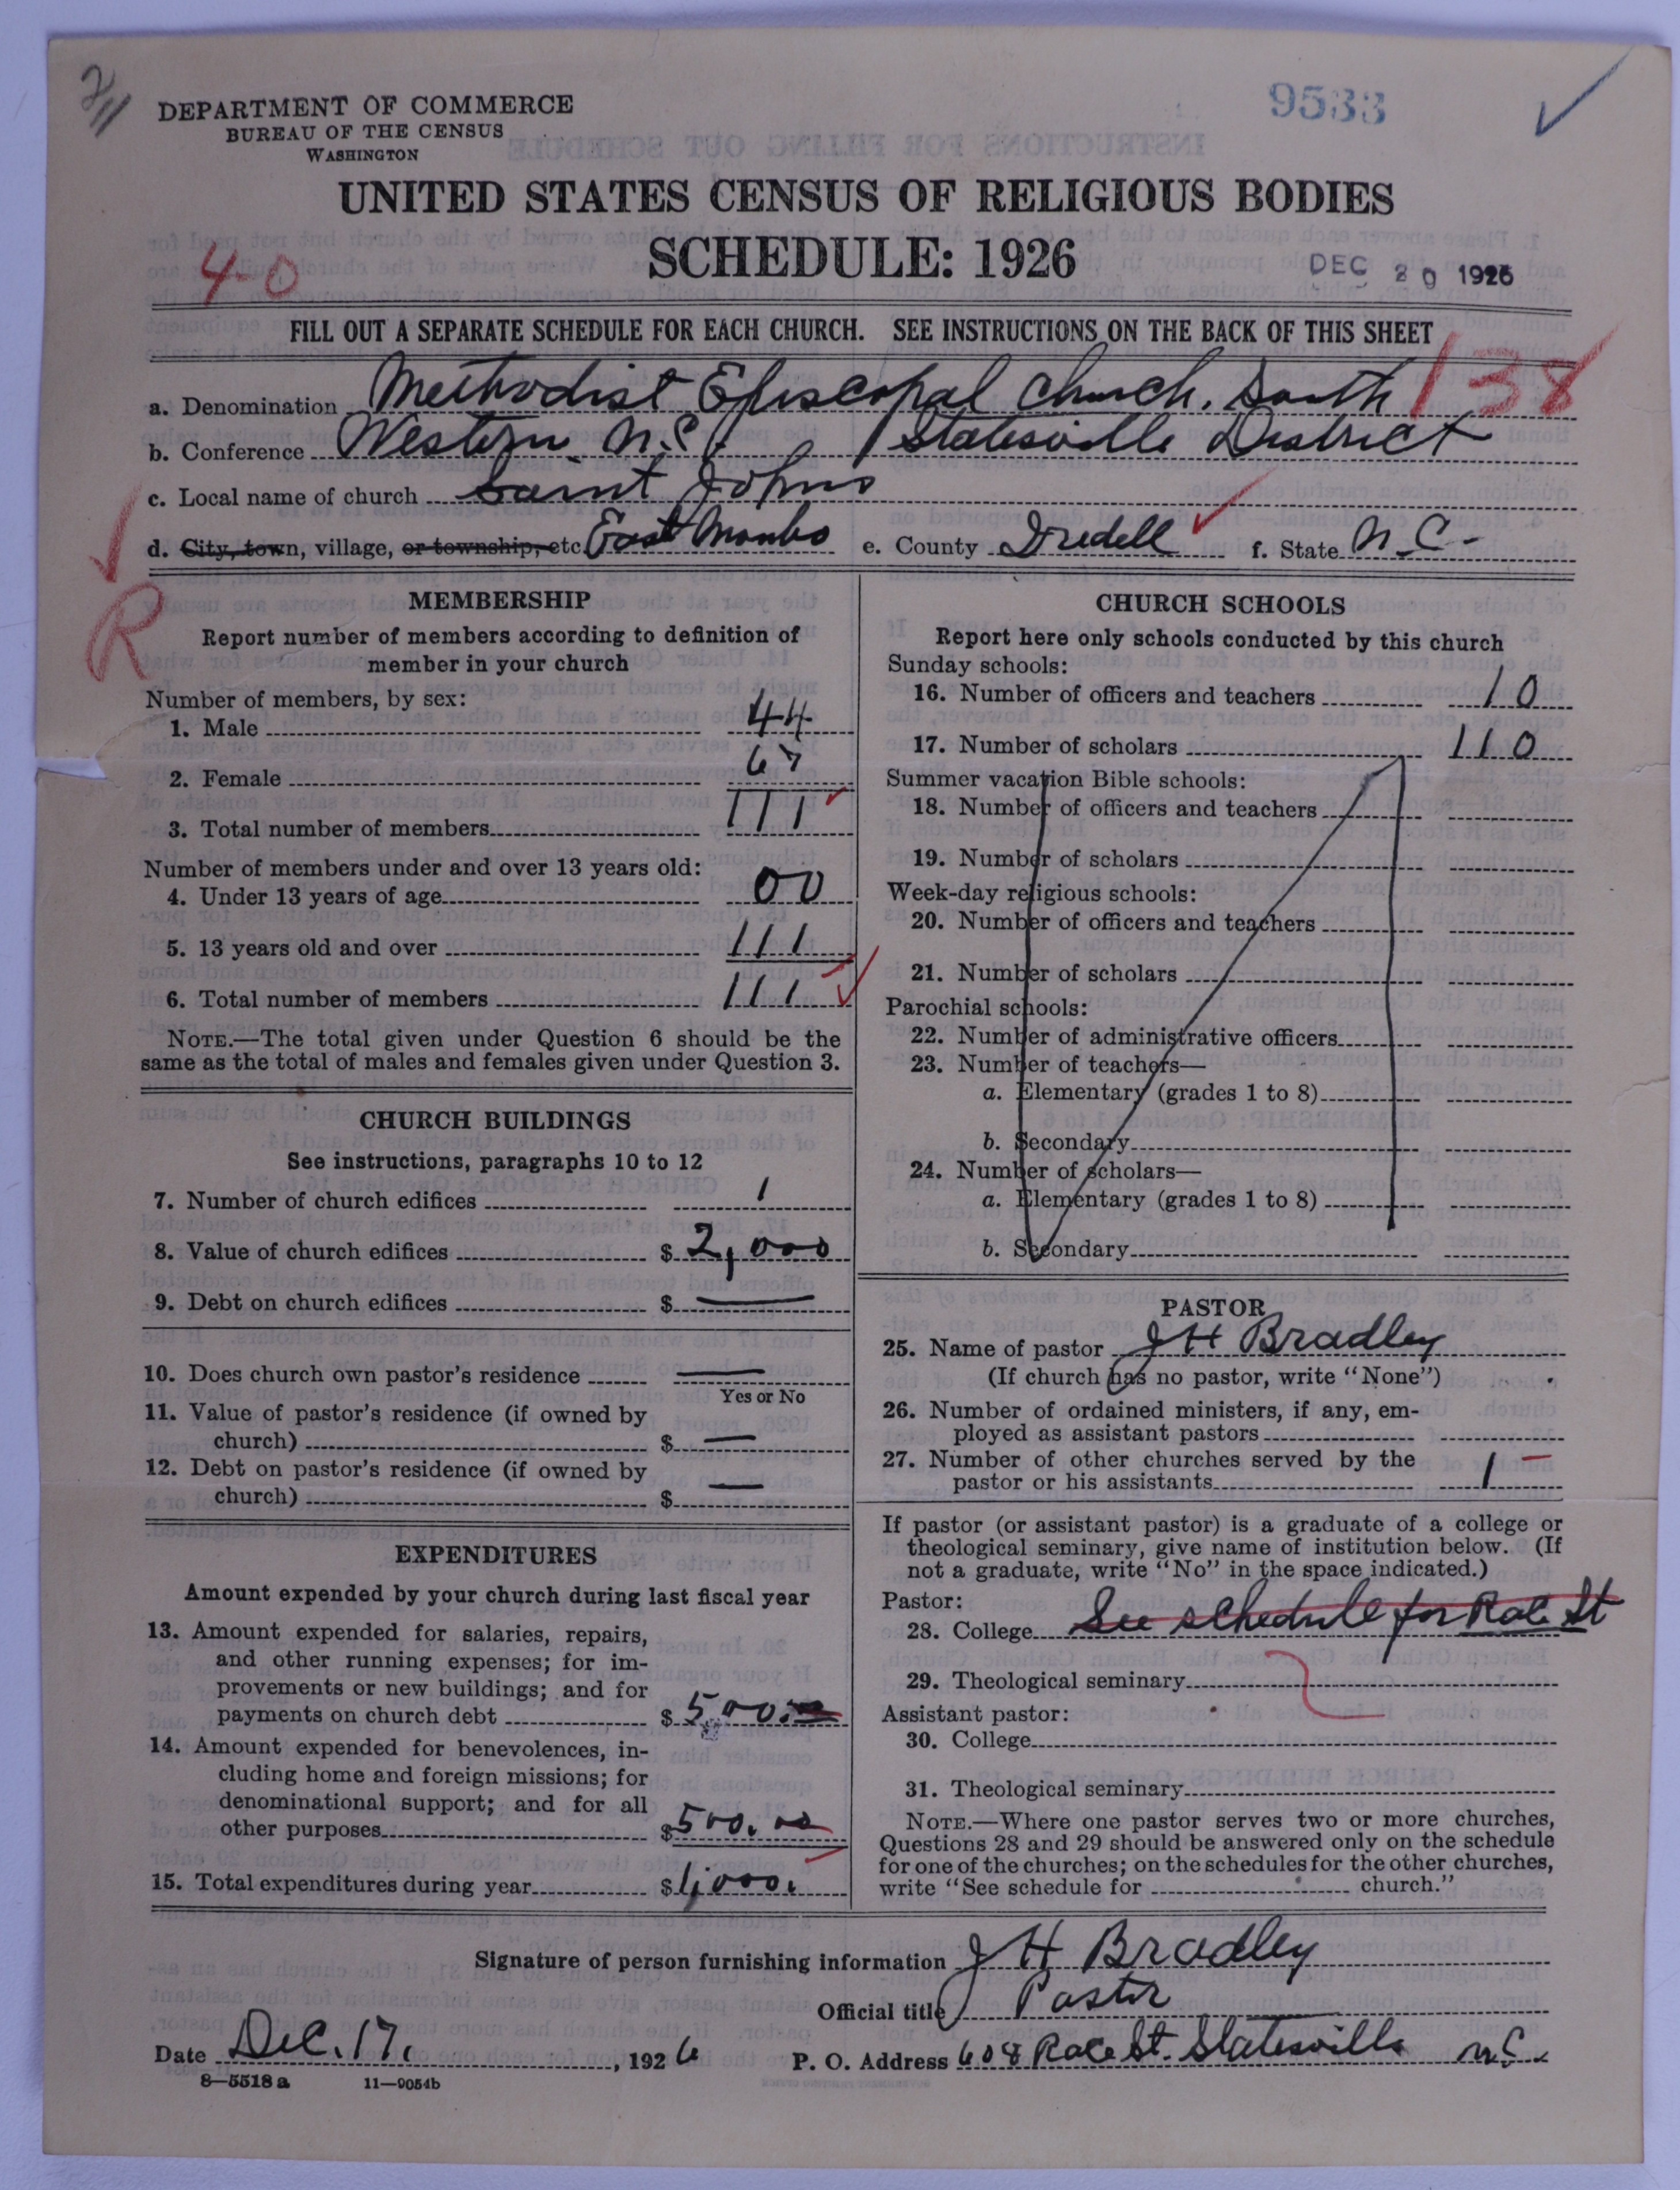 2/11
DEPARTMENT OF COMMERCE
BUREAU OF THE CENSUS
WASHINGTON
9533
UNITED STATES CENSUS OF RELIGIOUS BODIES
SCHEDULE: 1926
4-0
DEC 20 1926
FILL OUT A SEPARATE SCHEDULE FOR EACH CHURCH. SEE INSTRUCTIONS ON THE BACK OF THIS SHEET
a. Denomination Methodist Episcopal Church, South 138
b. Conference Western N.C. / Statesville District
c. Local name of church Saint Johns
d. City, town, village, or township, etc. East Monbo e. County Iredell f. State N.C.
R
MEMBERSHIP
Report number of members according to definition of
member in your church
Number of members, by sex:
1. Male 44
2. Female 67
3. Total number of members 111
Number of members under and over 13 years old:
4. Under 13 years of age 00
5. 13 years old and over 111
6. Total number of members 111
NOTE.—The total given under Question 6 should be the
same as the total of males and females given under Question 3.
CHURCH BUILDINGS
See instructions, paragraphs 10 to 12
7. Number of church edifices 1
8. Value of church edifices $ 2,000
9. Debt on church edifices $ —
10. Does church own pastor's residence —
Yes or No
11. Value of pastor's residence (if owned by
church) $ —
12. Debt on pastor's residence (if owned by
church) $ —
EXPENDITURES
Amount expended by your church during last fiscal year
13. Amount expended for salaries, repairs,
and other running expenses; for im-
provements or new buildings; and for
payments on church debt $ 500.00
14. Amount expended for benevolences, in-
cluding home and foreign missions; for
denominational support; and for all
other purposes $ 500.00
15. Total expenditures during year $ 1,000.
CHURCH SCHOOLS
Report here only schools conducted by this church
Sunday schools:
16. Number of officers and teachers 10
17. Number of scholars 110
Summer vacation Bible schools:
18. Number of officers and teachers
19. Number of scholars
Week-day religious schools:
20. Number of officers and teachers
21. Number of scholars
Parochial schools:
22. Number of administrative officers
23. Number of teachers—
a. Elementary (grades 1 to 8)
b. Secondary
24. Number of scholars—
a. Elementary (grades 1 to 8)
b. Secondary
PASTOR
25. Name of pastor J H Bradley
(If church has no pastor, write "None")
26. Number of ordained ministers, if any, em-
ployed as assistant pastors
27. Number of other churches served by the
pastor or his assistants 1
If pastor (or assistant pastor) is a graduate of a college or
theological seminary, give name of institution below. (If
not a graduate, write "No" in the space indicated.)
Pastor:
28. College See schedule for Race St
29. Theological seminary
Assistant pastor:
30. College
31. Theological seminary
NOTE.—Where one pastor serves two or more churches,
Questions 28 and 29 should be answered only on the schedule
for one of the churches; on the schedules for the other churches,
write "See schedule for church."
Signature of person furnishing information J H Bradley
Official title Pastor
Date Dec. 17, 1926 P. O. Address 608 Race St. Statesville N.C.
8—5518a 11—9054b